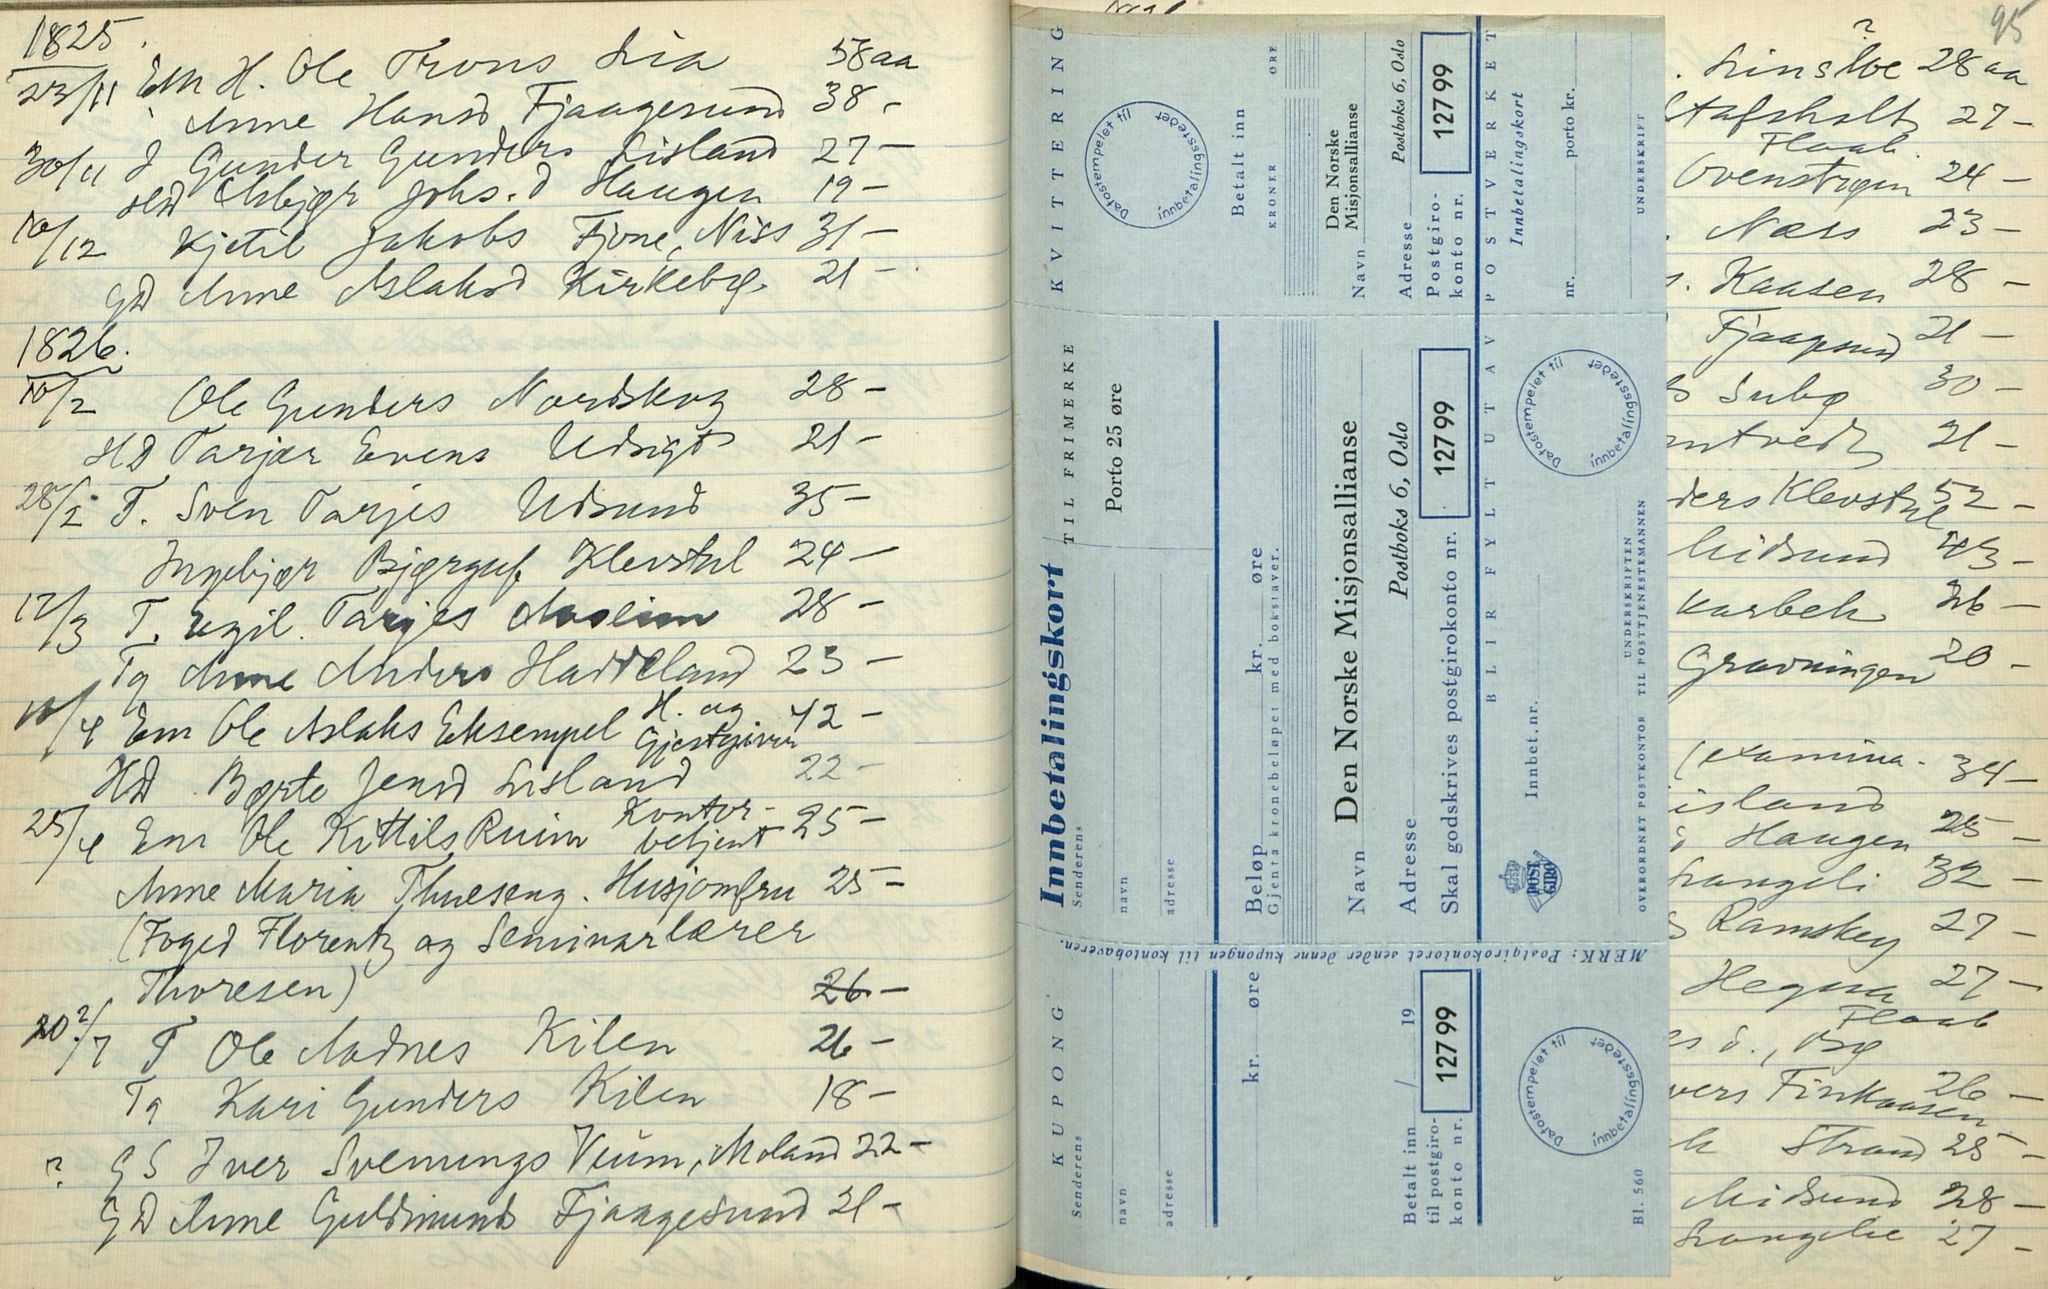 1825.
23/11 Em H. Ole Trons Lia 58 aa
Anne Hansd Fjaagesund 38 -
30/11 d Gunder Gunders Lisland 27 -
Asbjør Johs. d Haugen 19 -
10/12 Kjetil Jakobs Fjone, Niss 31 -
GD Anne Aslaksd Kirkebø. 21 -
1826.
10/2 Ole Gunders Nordskog 28 -
HD Tarjær Evens Udsigt 21 -
28/2 T. Sven Tarjes Udsund 35 -
Ingebjør Bjørgulf Klevstul 24 -
12/3 T. Egil Tarjes 28 -
Tg Anne Anders Haddeland 23 -
10/4 Em Ole Aslaks Eksempel H. og Gjestgiver 42 -
HD Børte Jensd Lisland 22 -
25/4 Em Ole Kittils Ruim Kontor-
betjent 25 -
Anne Maria Thuesen g. Husjomfru 25 -
(Foged Florentz og Seminarlærer
Thoresen) 26 -
20?/7 T Ole Aadnes Kilen 26 -
Tg Kari Gunders Kilen 18 -
? GS Iver Svennungs Vium, Moland 22 -
GD Anne Guldmunds Fjaagesund 21 -
KVITTERING
Datostempelet til innbetalingsstedet
Betalt inn
KRONER ØRE
Navn Den Norske
Misjonsallianse
Adresse Postboks 6, Oslo
Postgiro-
konto nr. 127 99
BLIR FYLT UT AV POSTVERKET
Innbetalingskort
nr. porto kr.
UNDERSKRIFT
Innbetalingskort
TIL FRIMERKE
Porto 25 øre
Senderens
navn
adresse
Beløp kr. øre
Gjenta kronebeløpet med bokstaver.
Navn Den Norske Misjonsallianse
Adresse Postboks 6, Oslo
Skal godskrives postgirokonto nr. 127 99
POST
GIRO
Innbet.nr.
Datostempelet til innbetalingsstedet
UNDERSKRIFTEN
OVERORDNET POSTKONTOR TIL POSTTJENESTEMANNEN
MERK: Postgirokontoret sender denne kupongen til kontohaveren.
KUPONG
Senderens
navn
adresse
kr. øre
Betalt inn / 19
til postgiro-
konto nr. 127 99
Datostempelet til innbetalingsstedet
Bl. 560
95
?
28 aa
27 -
Flaab.
24 -
Næss 23 -
Kaasen 28 -
Fjaagesund 21 -
30 -
21 -
ders Klevstul 52 -
Midsund 43 -
26 -
Gravningen 20 -
(examina- 34 -
island
Haugen 25 -
Langeli 32 -
27 -
27 -
Flaab
vers Finkaasen 26 -
Strand 25 -
Midsund 28 -
Langelie 27 -